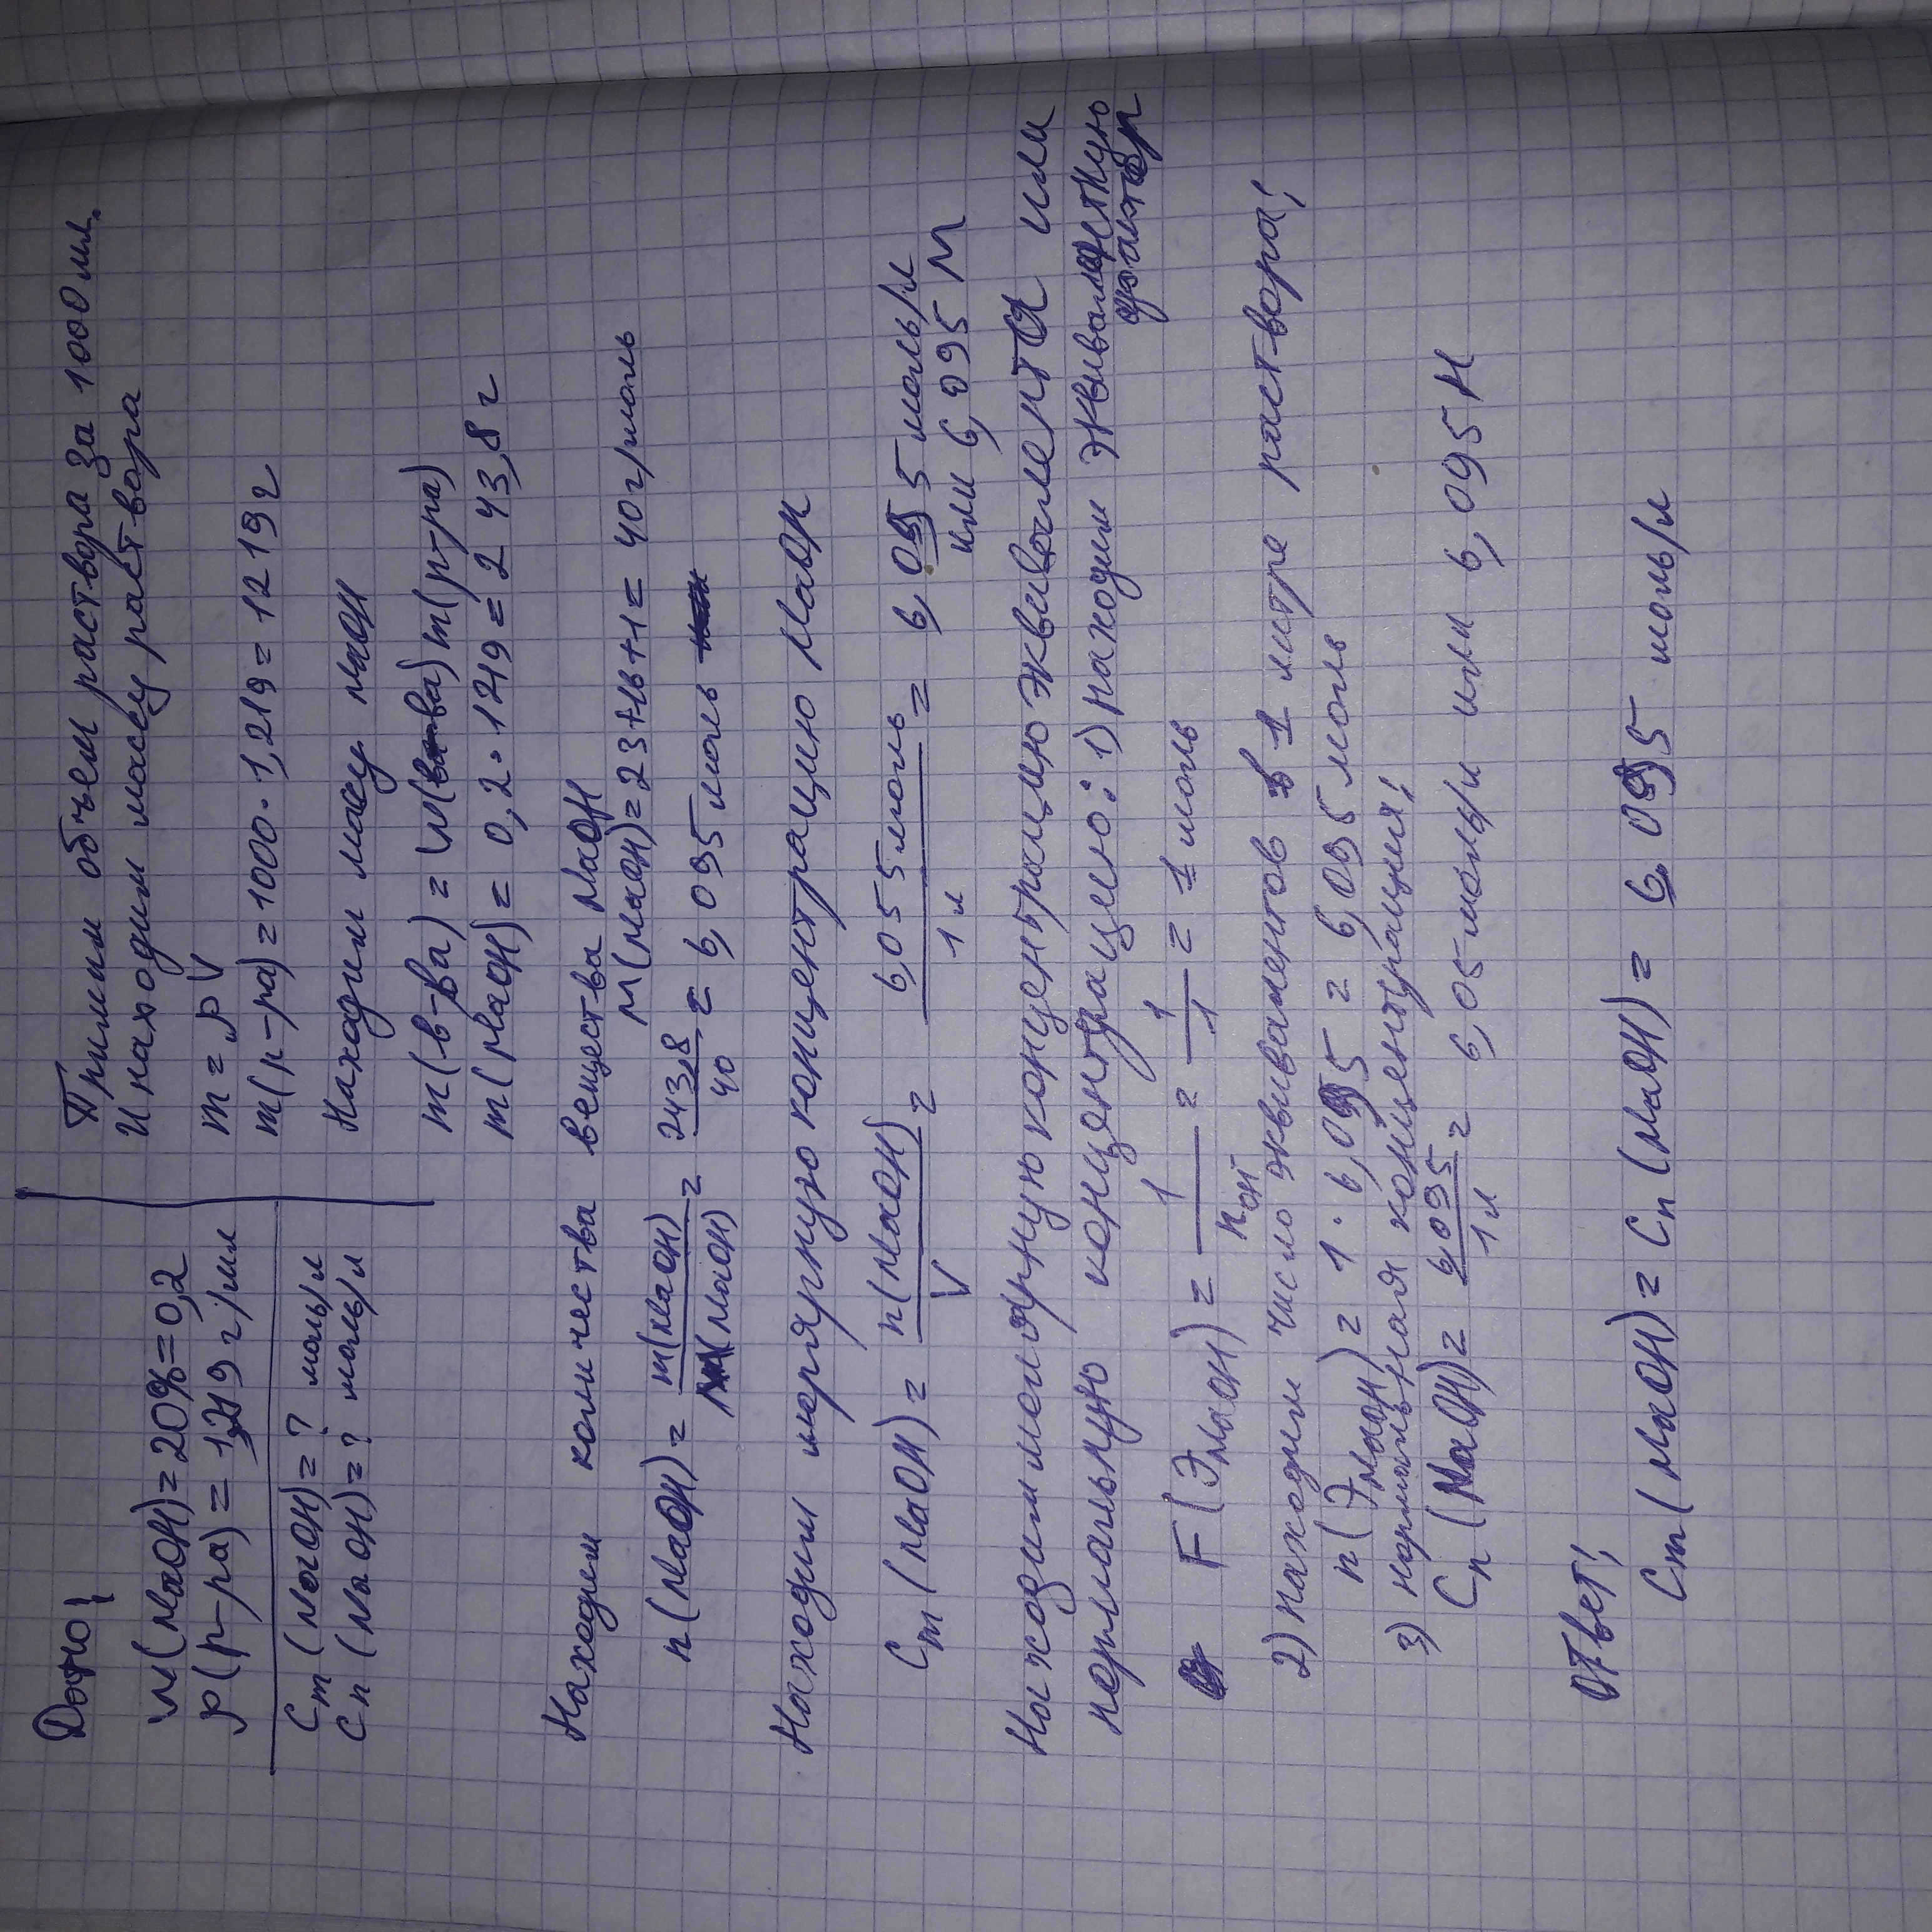 Дано:
W(NaOH)=20%=0,2
ρ(р-ра) = 1,219 г/мл
Cm (NaOH)=? моль/л
Cn (NaOH)=? моль/л
Примем объем раствора за 1000 мл.
И находим массу раствора
m = ρV
m(р-ра) = 1000·1,219 = 1219 г
Находим массу NaOH
m(в-ва) = W(в-ва) m(р-ра)
m(NaOH) = 0,2·1219 = 243,8 г
Находим количества вещества NaOH
M(NaOH)=23+16+1= 40 г/моль
n(NaOH) = m(NaOH)/M(NaOH) = 243,8/40 = 6,095 моль
Находим молярную концентрацию NaOH
Cm (NaOH) = n(NaOH)/V = 6,055 моль/1 л = 6,095 моль/л
или 6,095 М
Находим молярную концентрацию эквивалента или
нормальную концентрацию: 1) находим эквивалентную
фактор
F(ЭNaOH) = 1/nOH = 1/1 = 1 моль
2) находим число эквивалентов в 1 литре раствора;
n(ЭNaOH) = 1·6,095 = 6,095 моль
3) нормальная концентрация;
Cn (NaOH)= 6,095/1 л = 6,05 моль/л или 6,095 Н
Ответ:
Cm (NaOH) = Cn (NaOH) = 6,095 моль/л